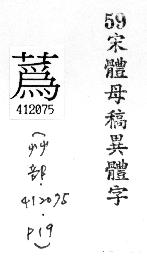 59宋體母稿異體字
蔿
412075
(艸部.412095.P19)